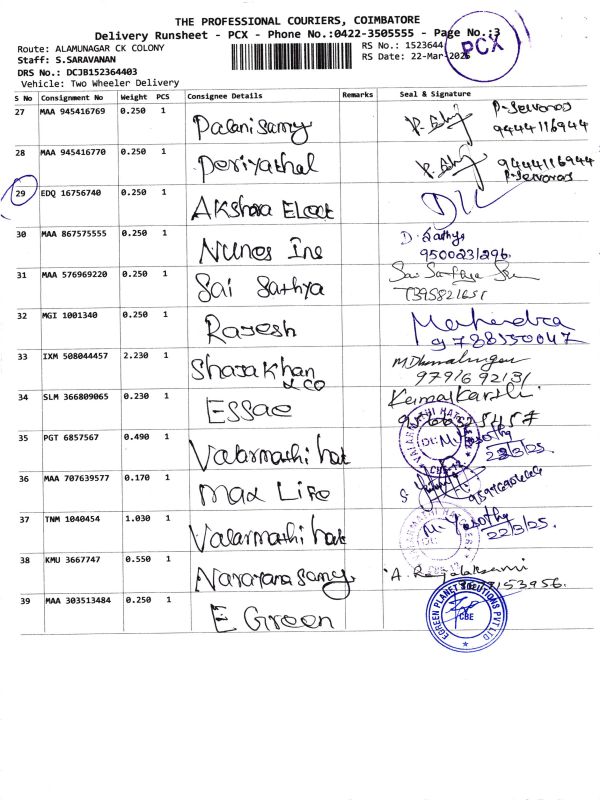 THE PROFESSIONAL COURIERS, COIMBATORE
Delivery Runsheet - PCX - Phone No.:0422-3505555 - Page No.:3
PCX
Route: ALAMUNAGAR CK COLONY
RS No.: 1523644
Staff: S.SARAVANAN
RS Date: 22-Mar-2025
DRS No.: DCJB152364403
Vehicle: Two Wheeler Delivery
S No Consignment No Weight PCS Consignee Details Remarks Seal & Signature
27 MAA 945416769 0.250 1 Palanisamy
9444116944
28 MAA 945416770 0.250 1 Periyathal 9444116944
29 EDQ 16756740 0.250 1 Akshara Elect
30 MAA 867575555 0.250 1 Nunes Ins D. Sathya
9500231296.
31 MAA 576969220 0.250 1 Sai Sathya
7395821651
32 MGI 1001340 0.250 1 Rajesh Mahendra
9788550047
33 IXM 508044457 2.230 1 Shasa Khan
& CO
9791692131
34 SLM 366809065 0.230 1 ESSAE
35 PGT 6857567 0.490 1 Valarmathi hat
22/3/25
36 MAA 707639577 0.170 1 Max Life
37 TNM 1040454 1.030 1 Valarmathi hat M. Yasotha
22/3/25.
38 KMU 3667747 0.550 1 Narayanasamy
39 MAA 303513484 0.250 1 E Green
EGREEN PLANET SOLUTIONS PVT LTD
CBE